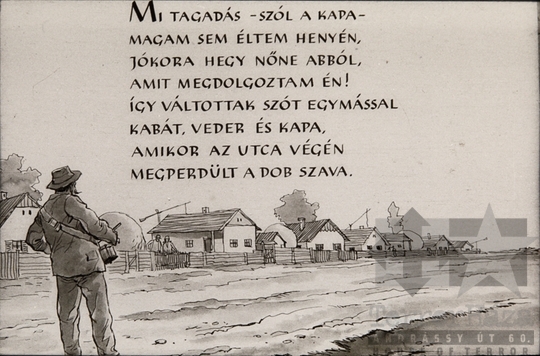 MI TAGADÁS – SZÓL A KAPA –
MAGAM SEM ÉLTEM HENYÉN,
JÓKORA HEGY NŐNE ABBÓL,
AMIT MEGDOLGOZTAM ÉN!
ÍGY VÁLTOTTAK SZÓT EGYMÁSSAL
KABÁT, VEDER ÉS KAPA,
AMIKOR AZ UTCA VÉGÉN
MEGPERDÜLT A DOB SZAVA.
ANDRÁSSY ÚT 60.
HOUSE OF TERROR